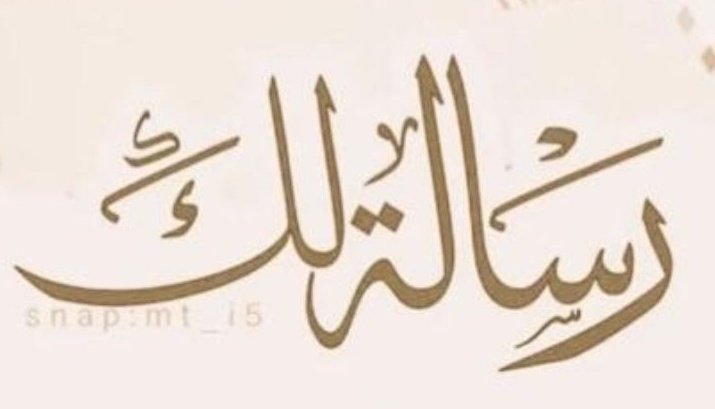 رسالة لك
snap:mt_i5